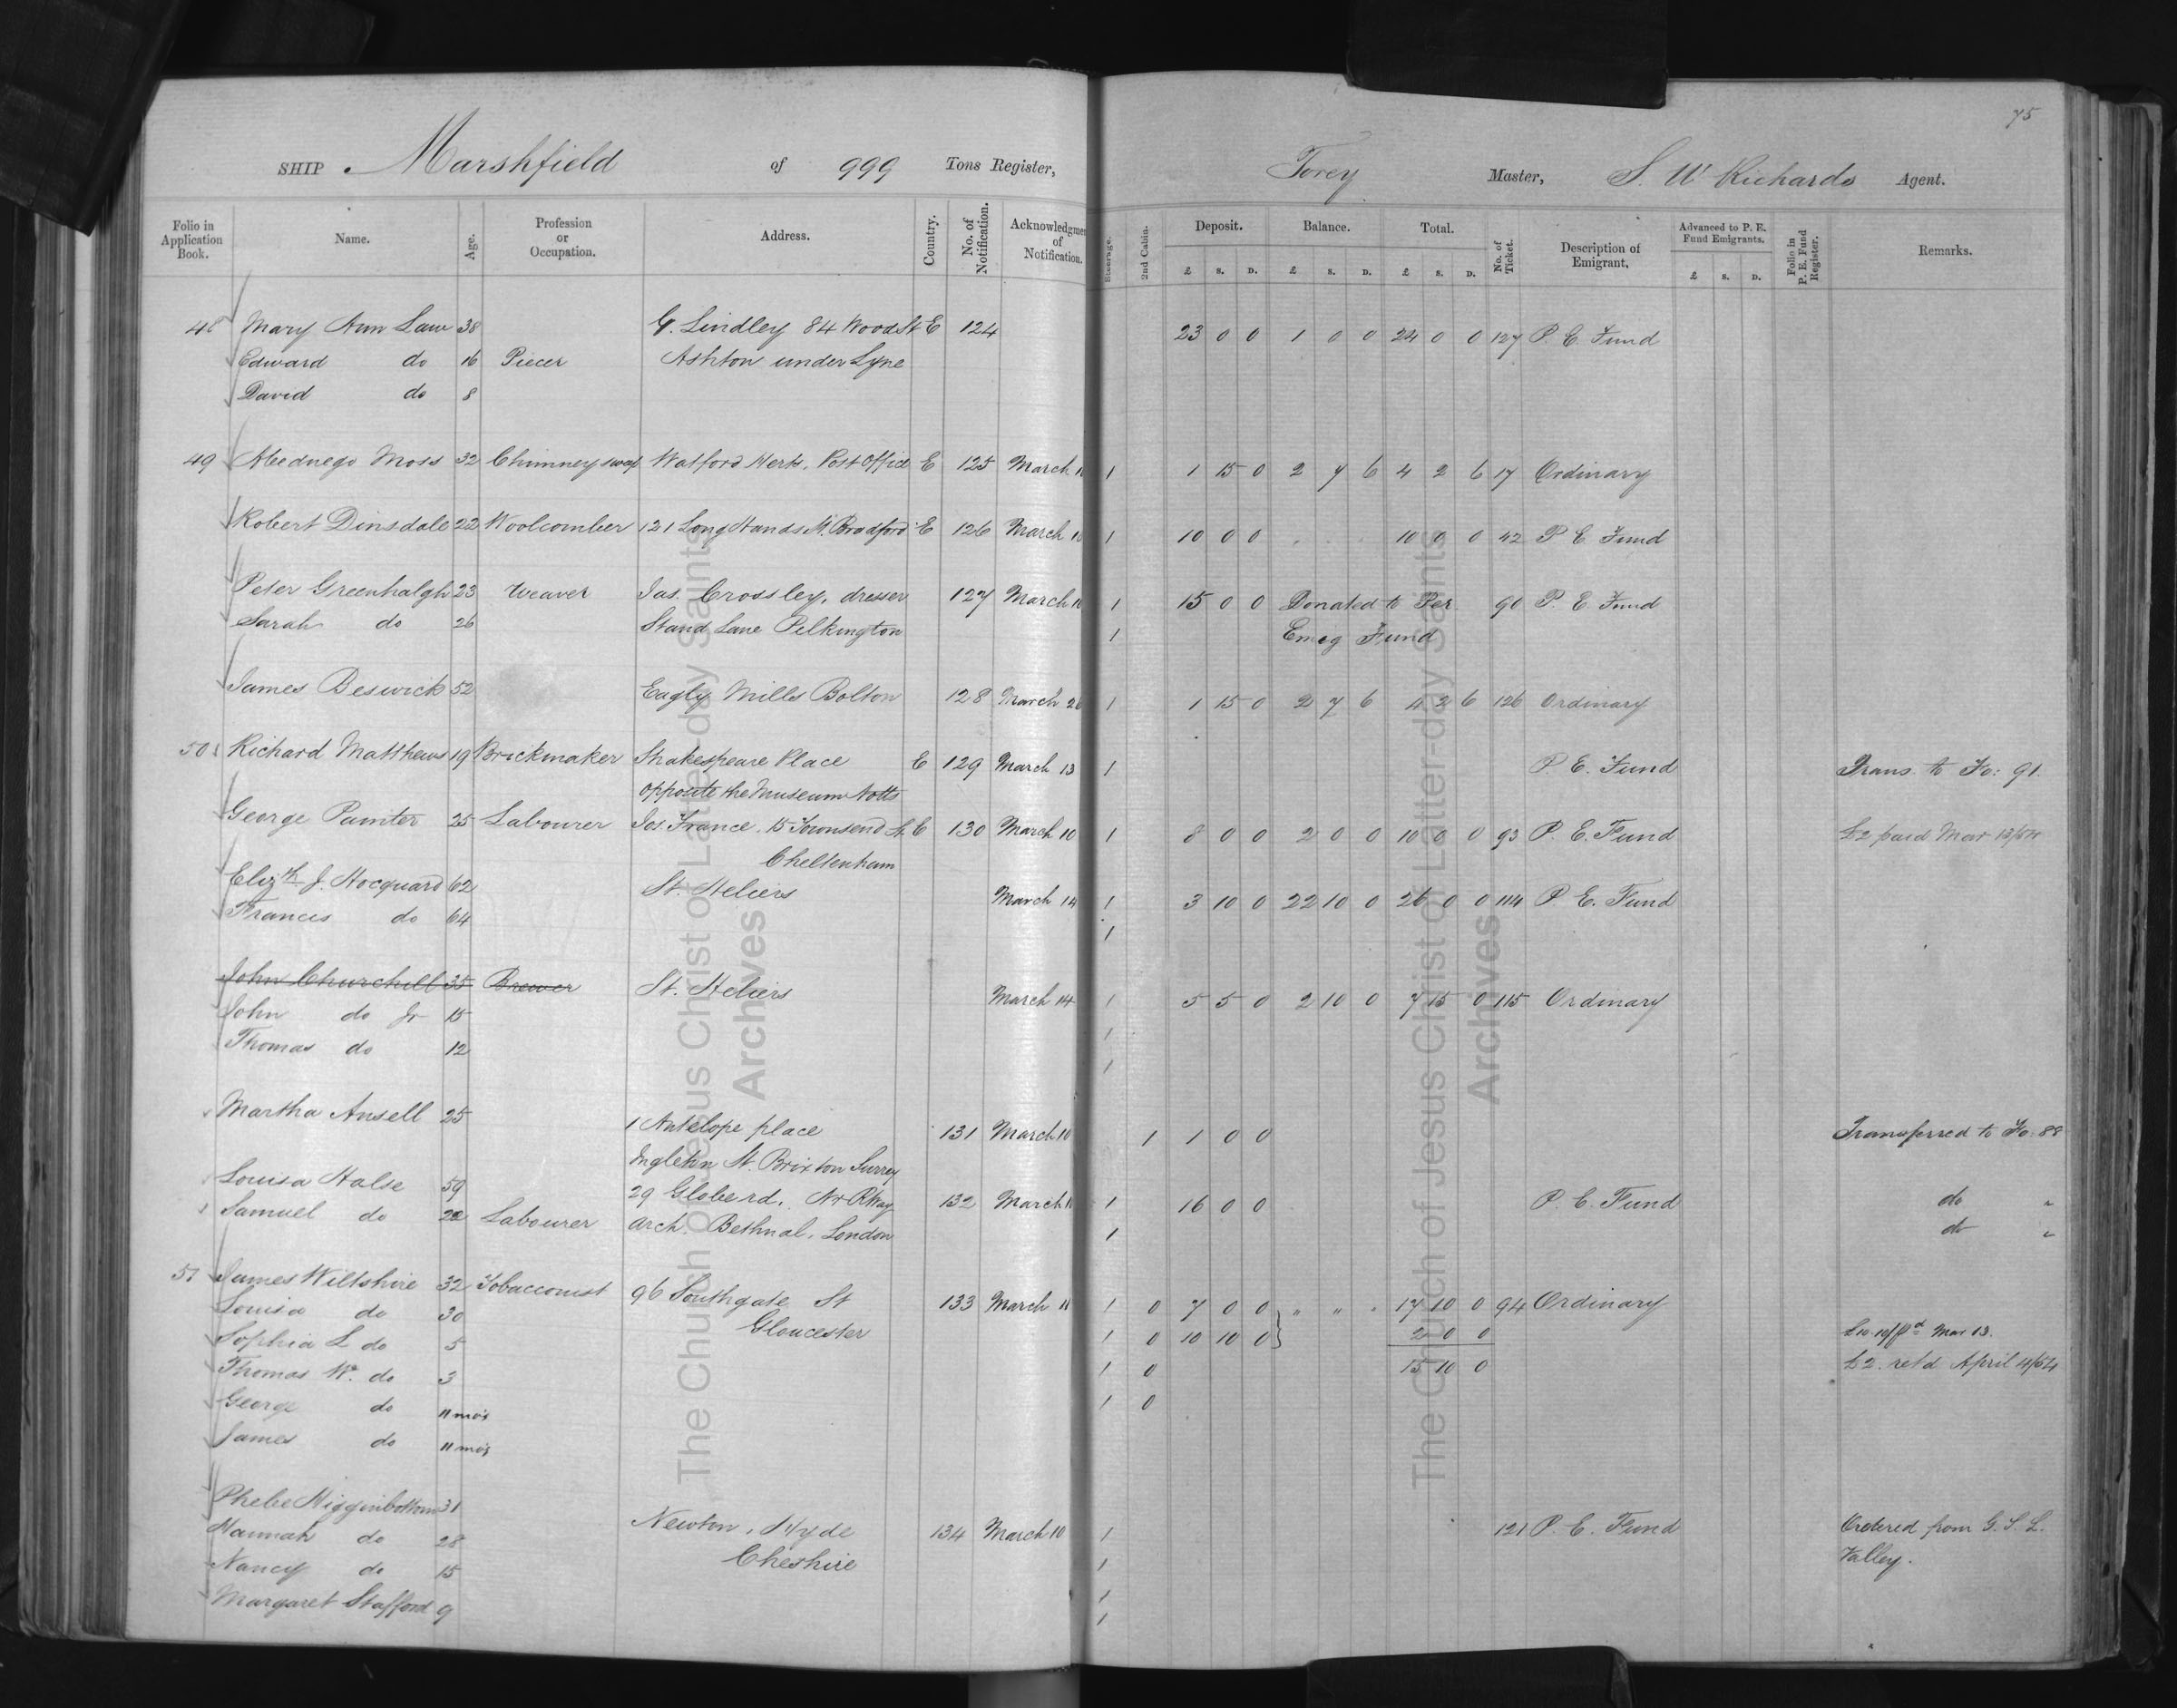 75
SHIP Marshfield of 999 Tons Register, Torey Master, S. W Richards Agent.
Folio in Application Book. Name. Age. Profession or Occupation. Address. Country. No. of Notification. Acknowledgmen of Notification. Steerage. 2nd Cabin. Deposit. £ s. D. Balance. £ s. D. Total. £ s. D. No. of Ticket. Description of Emigrant. Advanced to P. E. Fund Emigrants. £ s. D. Folio in P. E. Fund Register. Remarks.
48 Mary Ann Law 38 G. Lindley 84 Wood St E 124 23 0 0 1 0 0 24 0 0 127 P. E. Fund
Edward do 16 Piecer Ashton under Lyne
David do 8
49 Abednego Moss 32 Chimney sweep Watford Herts, Post Office E 125 March 1 1 15 0 2 7 6 4 2 6 17 Ordinary
Robert Dinsdale 22 Woolcomber 121 Long Hands St. Bradford E 126 March 1 10 0 0 10 0 0 42 P E. Fund
Peter Greenhalgh 23 Weaver Jas. Crossley, dresser 127 March 10 1 15 0 0 Donated to Per 90 P. E. Fund
Sarah do 26 Stand Lane Pilkington 1 Emig Fund
James Beswick 52 Eagly Mills Bolton 128 March 1 1 15 0 2 7 6 4 2 6 126 Ordinary
50 Richard Matthews 19 Brickmaker Shakespeare Place E 129 March 13 1 P. E. Fund Trans. to Fo: 91
opposite the Museum Notts
George Painter 25 Labourer Jos. France, 15 Townsend St. E 130 March 10 1 8 0 0 2 0 0 10 0 0 93 P. E. Fund £2 paid Mar 13/54
Cheltenham
Elizth J. Hocquard 62 St. Heliers March 14 1 3 10 0 22 10 0 26 0 0 114 P. E. Fund
Francis do 64 1
John Churchill 35 Brewer St. Heliers March 14 1 5 5 0 2 10 0 7 15 0 115 Ordinary
John do Jr 15 1
Thomas do 12 1
Martha Ansell 25 1 Antelope place 131 March 10 1 1 0 0 Transferred to Fo: 88
Ingleton St. Brixton Surrey
Louisa Halse 59 29 Globe rd, Nr RWay 132 March 1 16 0 0 P. E. Fund do "
Samuel do 22 Labourer arch. Bethnal, London 1 do "
51 James Wiltshire 32 Tobacconist 96 Southgate St 133 March 11 1 0 7 0 0 " " " 17 10 0 94 Ordinary
Louisa do 30 Gloucester 1 0 10 10 0 2 0 0 £10.10/ pd Mar 13.
Sophia L do 5 1 0 15 10 0 £2. ret'd April 4/54
Thomas W. do 3 1 0
George do 11 mo's
James do 11 mo's
Phebe Higginbottom 31 Newton, Hyde 134 March 10 1 121 P. E. Fund Ordered from G. S. L.
Hannah do 28 Cheshire 1 Valley.
Nancy do 15 1
Margaret Stafford 9 1
The Church of Jesus Christ of Latter-day Saints
Archives
The Church of Jesus Christ of Latter-day Saints
Archives